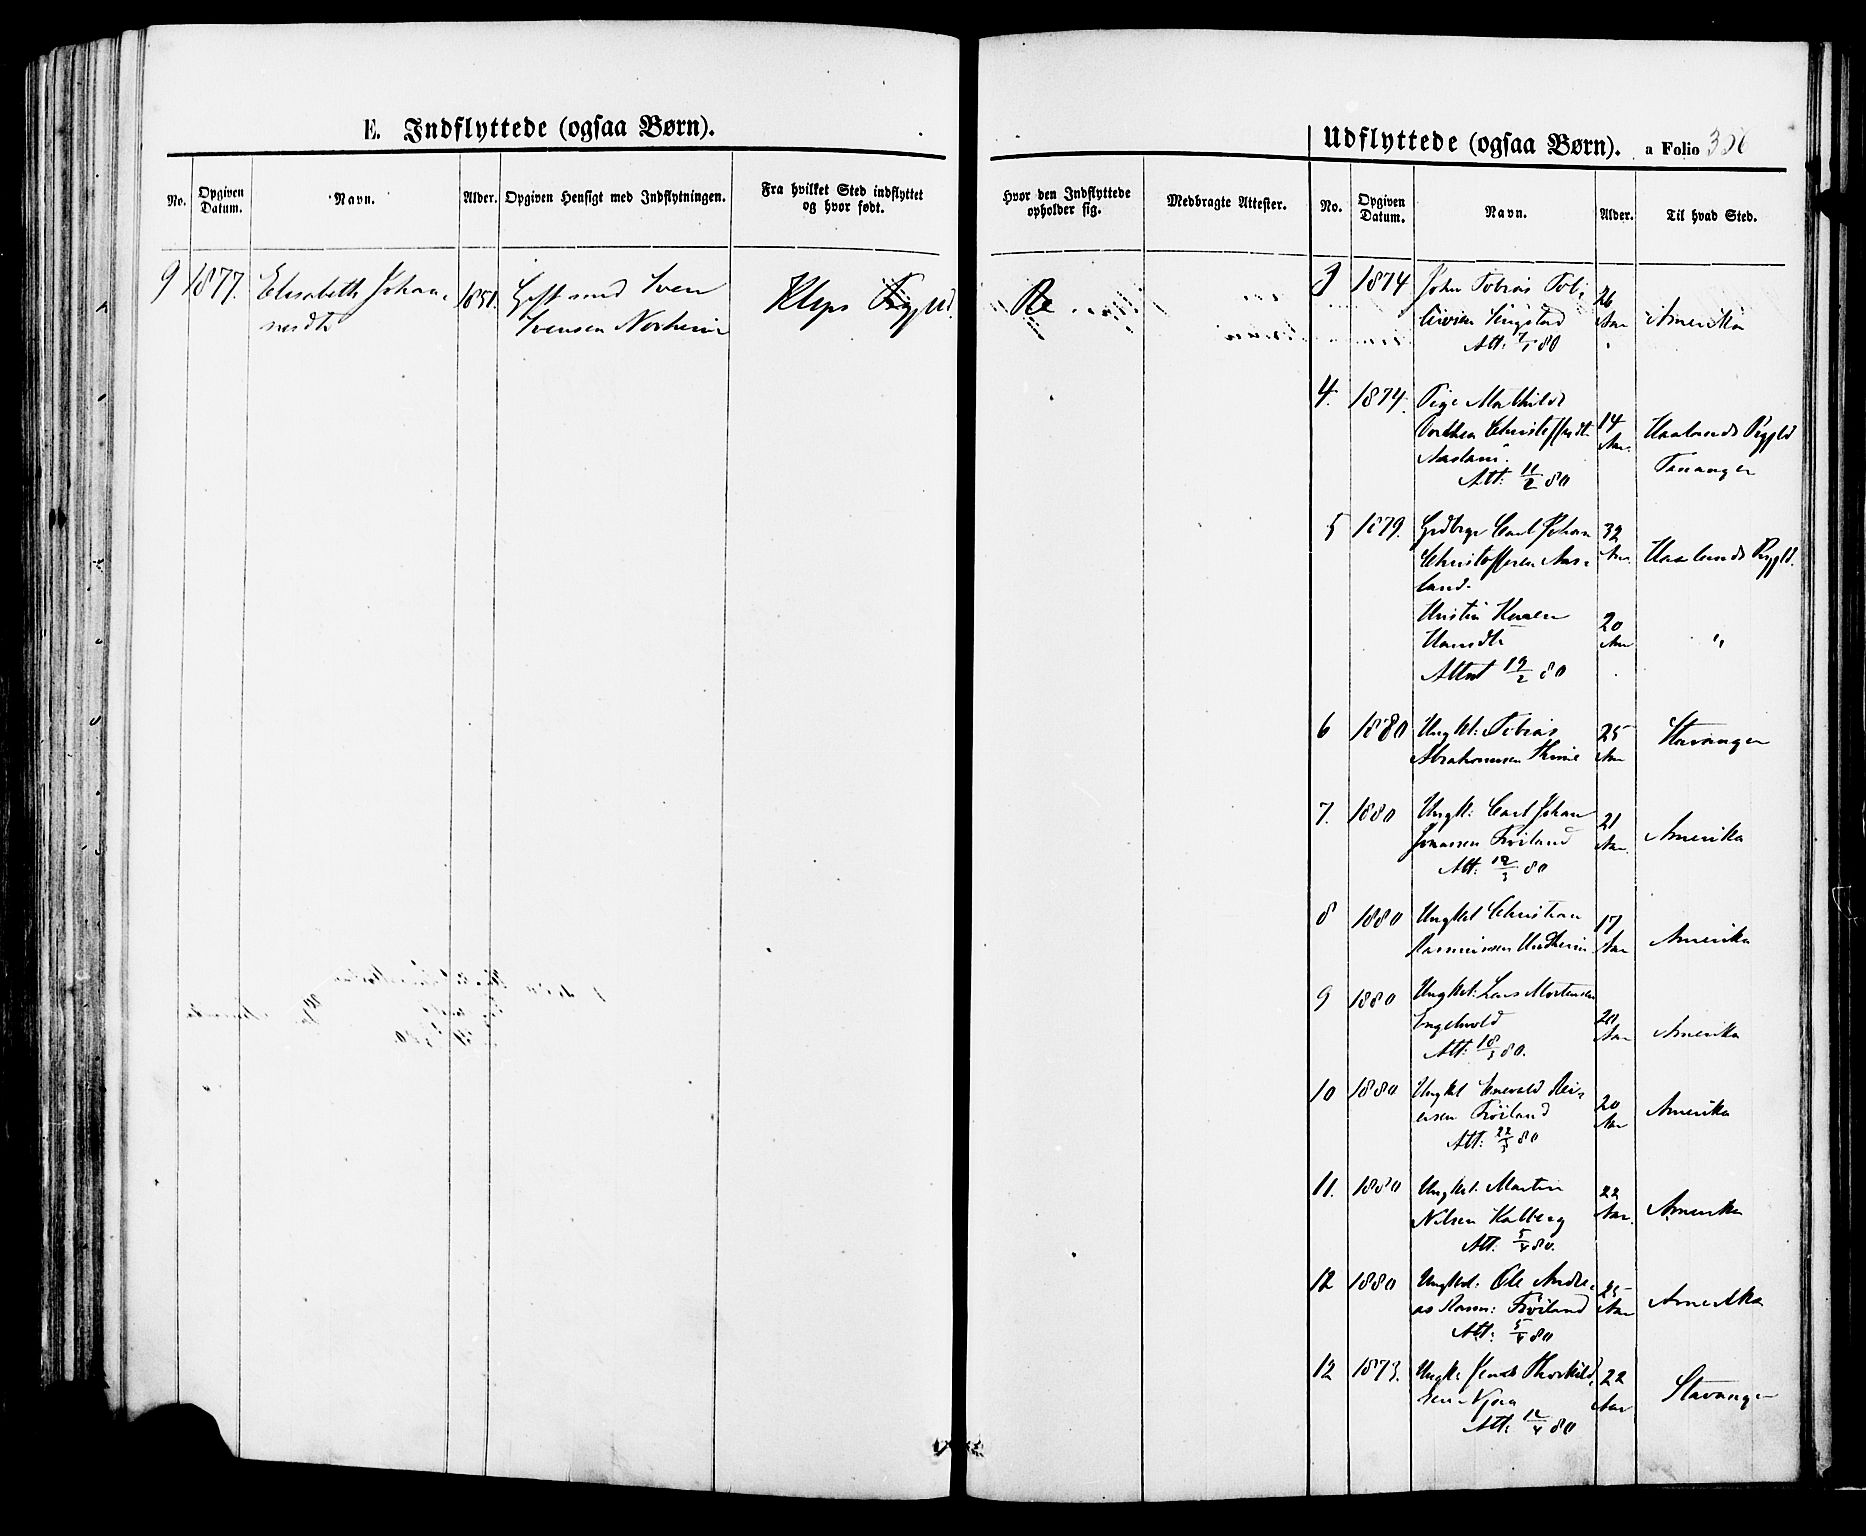 E. Indflyttede (ogsaa Børn).
No.
Opgiven Datum.
Navn.
Alder.
Opgiven Hensigt med Indflytningen.
Fra hvilket Sted indflyttet og hvor født.
9 1877. Elisabeth Johan- 1851. Gift med Sven Kleps Prgjld.
nesdtr Svensen Norheim
Udflyttede (ogsaa Børn). a Folio
Hvor den Indflyttede opholder sig.
Medbragte Attester.
No.
Opgiven Datum.
Navn.
Alder.
Til hvad Sted.
Re
3 1874 John Tobias Tobi- 26
Aar Amerika
Att: 7/1 80
4. 1874. Pige Mathilde
Dorthea Christoffersdt. 14 Haalands Prgjld
Aasland. Aar. Tananger
Att: 11/2 80
5 1879. Carl Johan 32
Christoffersen Aas- Aar. Haalands Prgjld.
land.
Karen 20
Hansdtr Aar "
Attest 19/2 80
6 1880 Ungkl: Tobias 25 Stavanger
Abrahamsen Aar
7. 1880 Ungk: Carl Johan 21 Amerika
Jonassen Frøiland Aar.
Att: 12/3 80
8 1880 Ungkl Christian 17 Amerika
Rasmussen Aar
9 1880 Ungkl: Lars Mortensen
20 Amerika
Aar
Att: 18/3 80.
10 1880 Ungkl Rei- 20 Amerika
ersen Frøiland Aar
Att: 22/3 80
11. 1880 Ungkl. Martin 22
Nilsen Kalberg Aar. Amerika
Att. 5/4 80.
12 1880 Ungkl. Ole Andre- 25 Amerika
as Rasm: Frøiland Aar
Att: 5/4 80
12 1873. Ungk: Thorkild- 22
sen Njaa Aar Stavanger
Att: 12/4 80